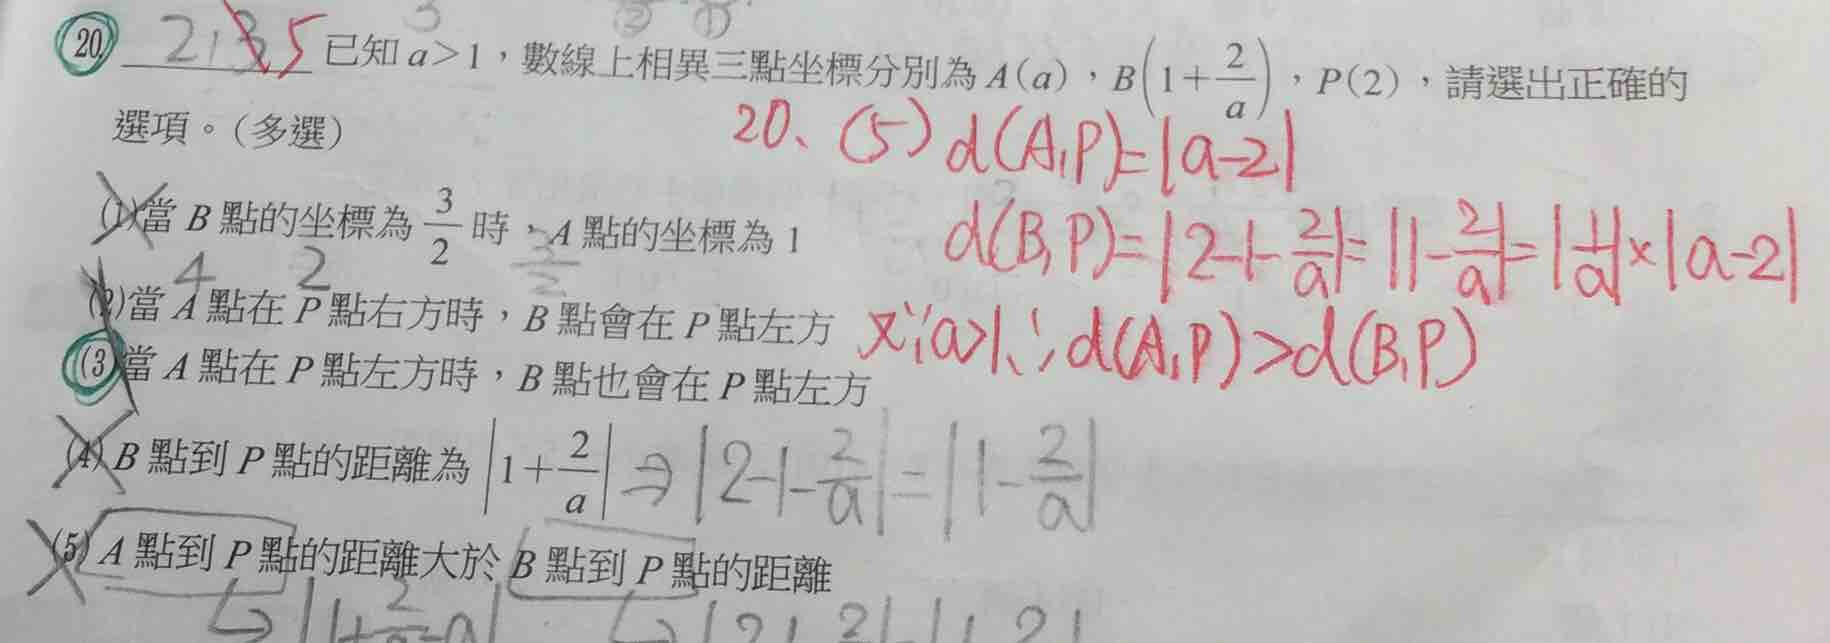 ② ①
3
20. 2,3 5 已知 a>1，數線上相異三點坐標分別為 A(a)，B(1+2/a)，P(2)，請選出正確的
選項。(多選)
20、(5) d(A,P)=|a-2|
(1)當 B 點的坐標為 3/2 時，A 點的坐標為 1
d(B,P)=|2-1-2/a|=|1-2/a|=|1/a|×|a-2|
4 2 3/2
(2)當 A 點在 P 點右方時，B 點會在 P 點左方
又∵a>1,∴d(A,P)>d(B,P)
(3)當 A 點在 P 點左方時，B 點也會在 P 點左方
(4) B 點到 P 點的距離為 |1+2/a| ⇒ |2-1-2/a|=|1-2/a|
(5) A 點到 P 點的距離大於 B 點到 P 點的距離